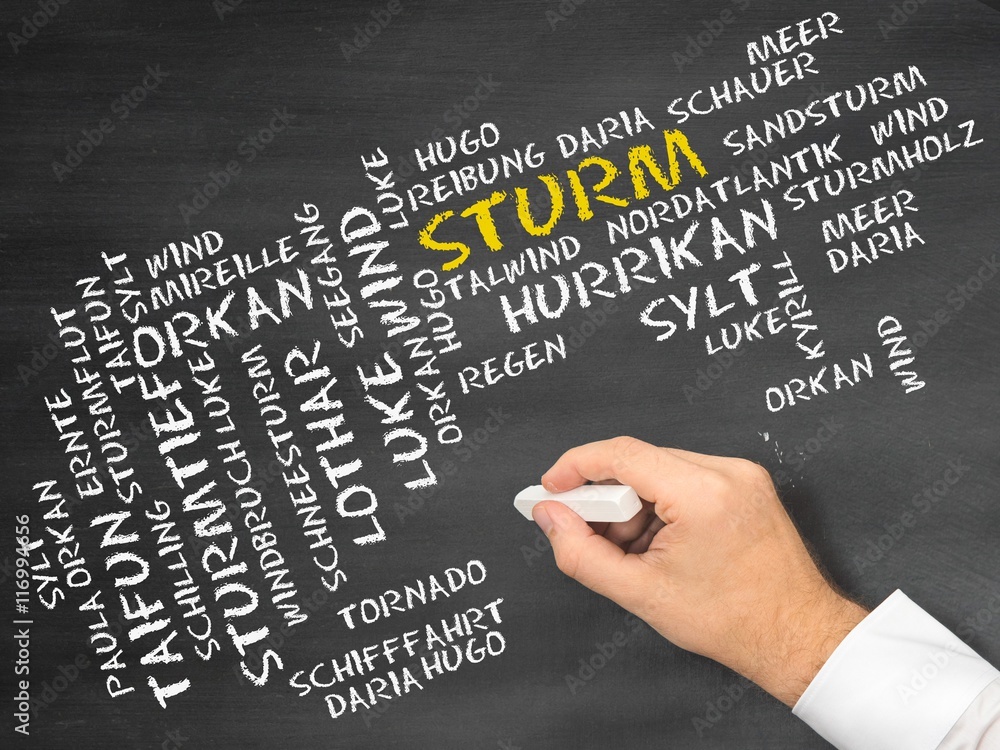 MEER
SCHAUER
HUGO
REIBUNG
DARIA
STURM
SANDSTURM
WIND
NORDATLANTIK
STURMHOLZ
TALWIND
HURRIKAN
MEER
DARIA
SYLT
LUKE
KYRILL
ORKAN
WIND
REGEN
LUKE
WIND
LUKE
ORKAN
HUGO
SEEGANG
LOTHAR
WIND
MIREILLE
ORKAN
SYLT
TAIFUN
STURMTIEF
LUKE
WINDBRUCH
SCHNEESTURM
WINDESTURM
STURMFLUT
ERNTE
ORKAN
SYLT
PAULA
TAIFUN
TAIFUN
SCHILLING
STURM
TORNADO
SCHIFFFAHRT
DARIA HUGO
Adobe Stock | #116994656